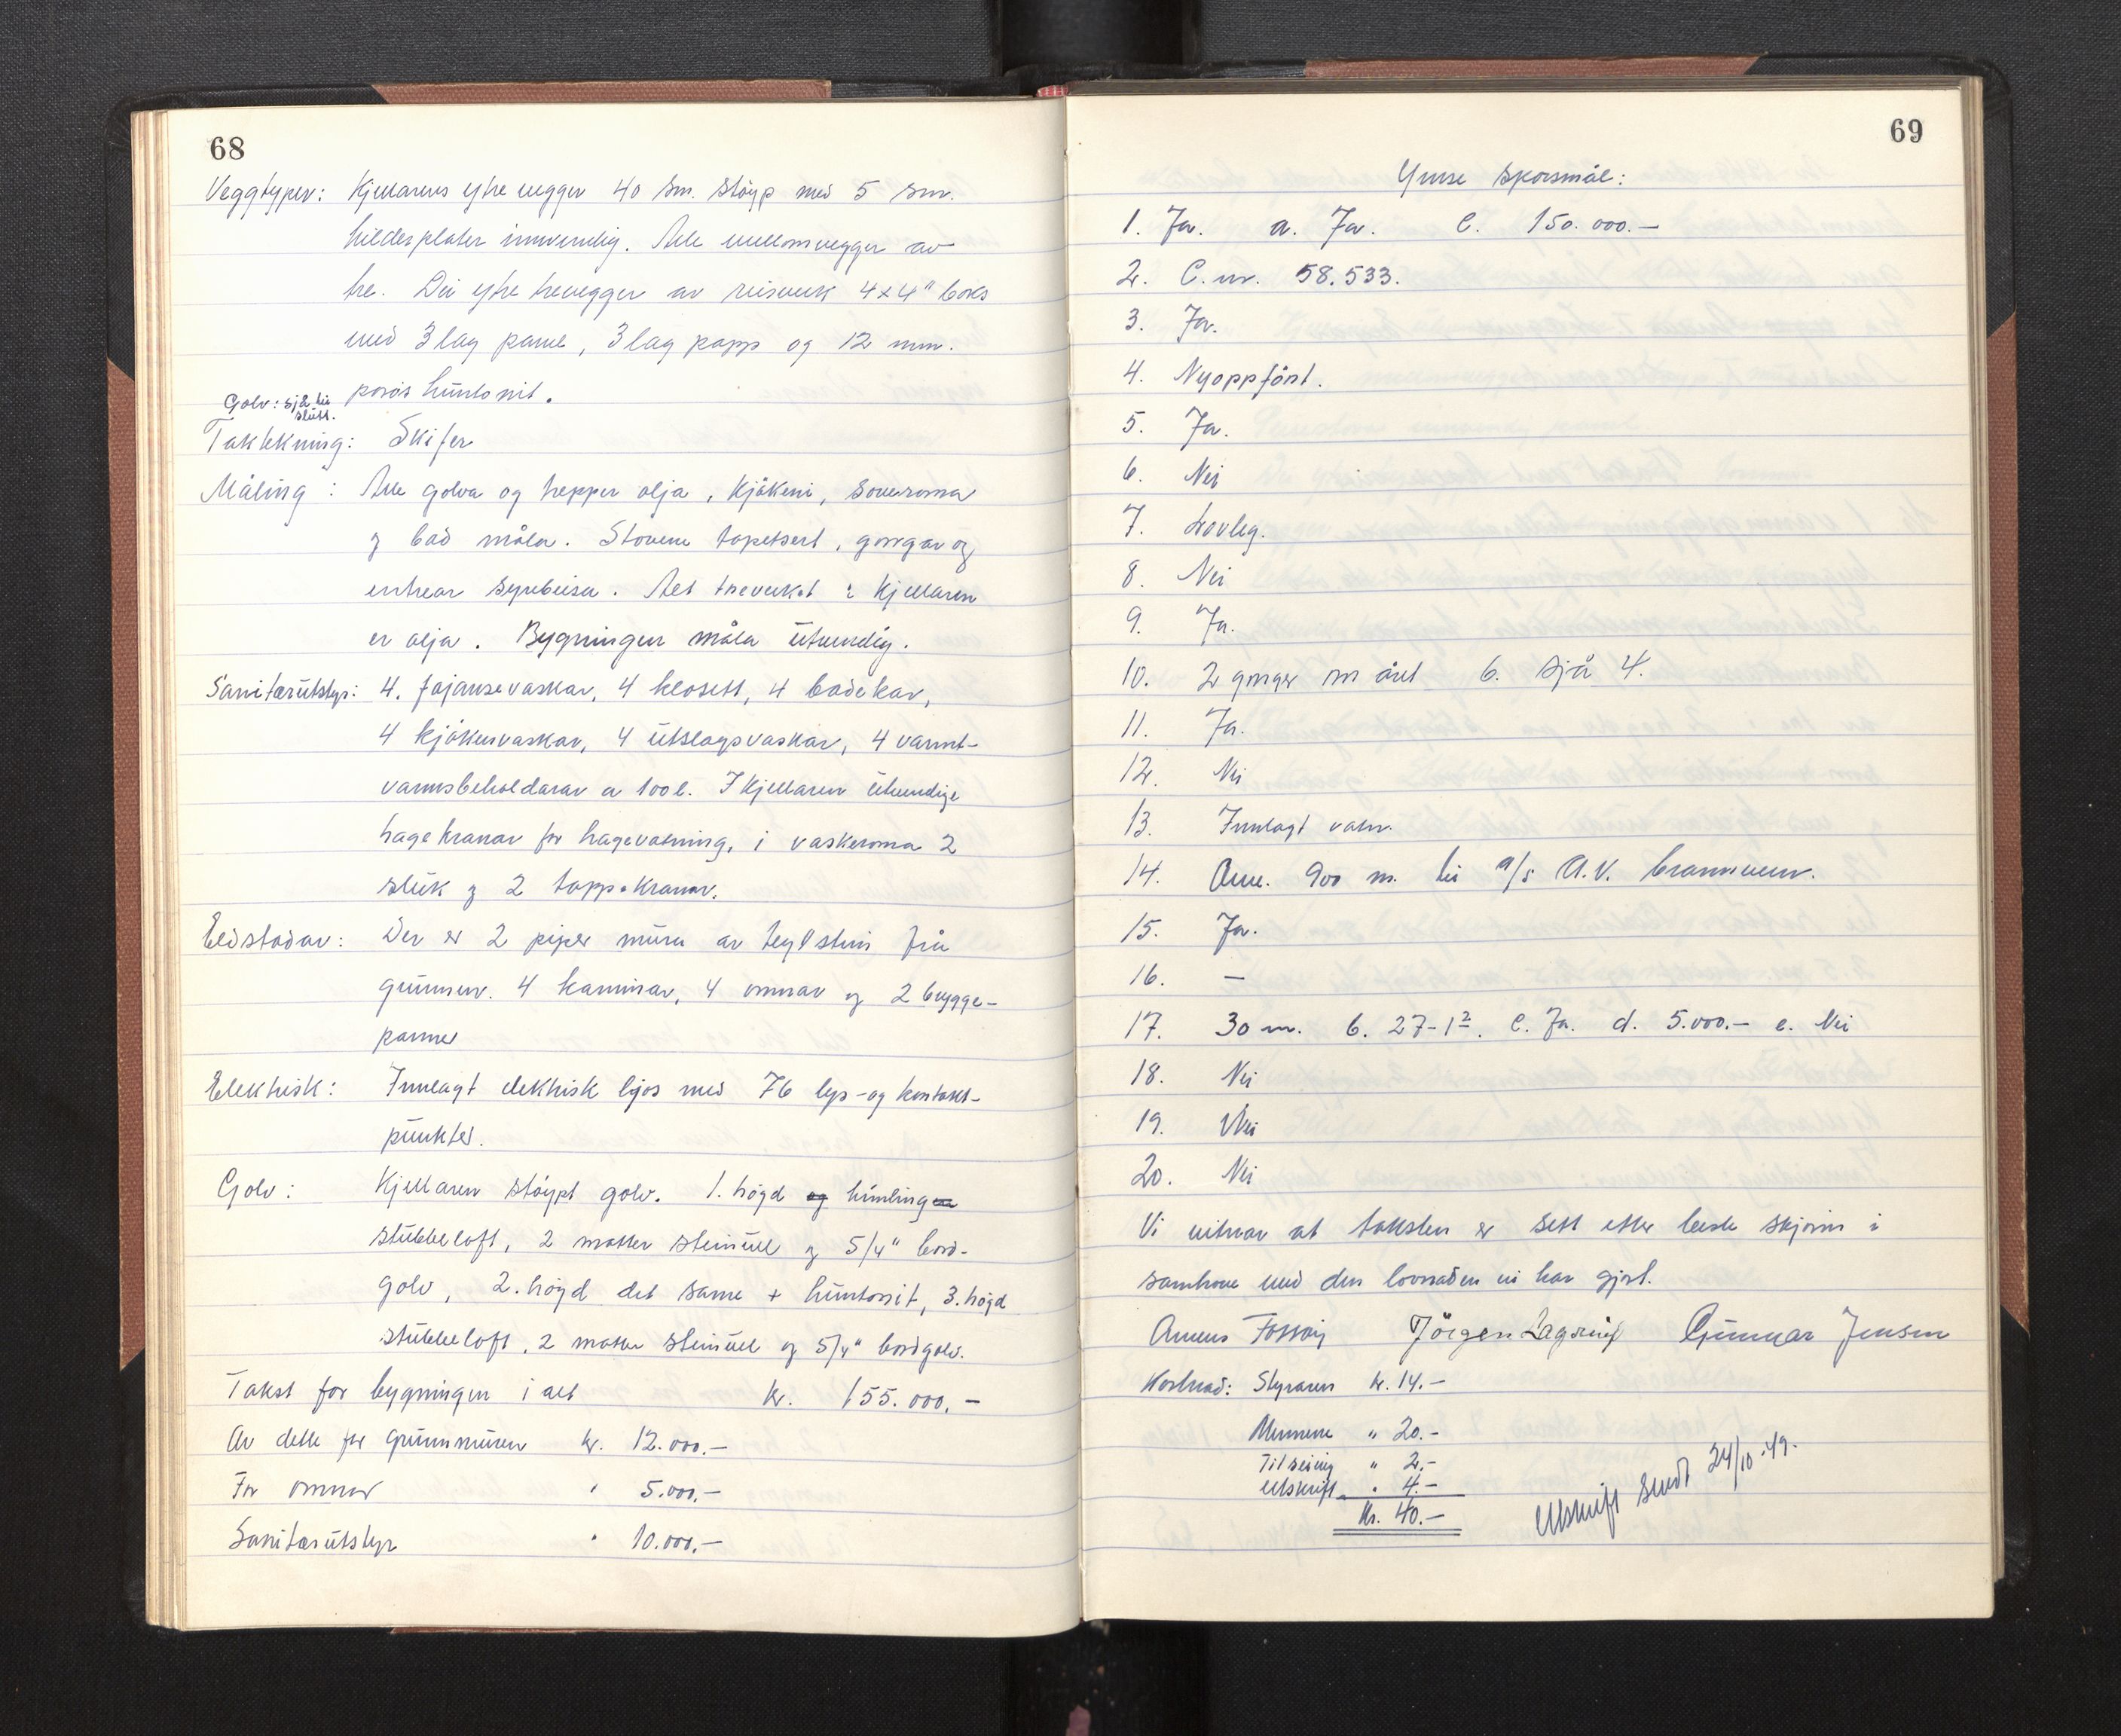 68
Veggtyper: Kjellarens ytre vegger 40 sm. støyp med 5 sm.
hilderplater innvendig. Alle mellomvegger av
tre. Dei ytre trevegger av reisverk 4x4" boks
med 3 lag panel, 3 lag papp og 12 mm.
porøs huntonit.
Golv: sjå til slutt.
Taktekning: Skifer
Måling: Alle golva og trepper olja, kjøkeni, soveroma
og bad måla. Stovene tapetsert, gangar og
entrear synbeisa. Alt treverket i kjellaren
er olja. Bygningen måla utvendig.
Sanitærutstyr: 4. fajansevaskar, 4 klosett, 4 badekar,
4 kjøkenvaskar, 4 utslagsvaskar, 4 varmt-
vannsbeholdarar a 100 l. I kjellaren utvendige
hagekranar for hagevatning, i vaskeroma 2
sluk og 2 tappekranar.
Eldstadar: Der er 2 piper mura av teglstein frå
grunnen. 4 kaminar, 4 omnar og 2 brygge-
panner
Elektrisk: Innlagt elektrisk ljos med 76 lys- og kontakt-
punkter.
Golv: Kjellaren støypt golv. 1. høgd og himlingen
stubbeloft, 2 matter steinull og 5/4" bord-
golv, 2. høgd det same + huntonit, 3. høgd
stubbeloft, 2 matter steinull og 5/4" bordgolv.
Takst for bygningen i alt kr. 155.000.-
Av dette for grunnmuren kr. 12.000.-
For omnar " 5.000.-
Sanitærutstyr " 10.000.-
69
Ymse spørsmål:
1. Ja. a. Ja. c. 150.000.-
2. C. nr. 58.533.
3. Ja.
4. Nyoppført.
5. Ja.
6. Nei
7. Lovleg.
8. Nei
9. Ja.
10. 2 gonger om året b. sjå 4.
11. Ja.
12. Nei
13. Innlagt vatn.
14. Oml. 900 m. til a/s A.V. brannvern.
15. Ja.
16. -
17. 30 m. b. 27-1². c. Ja. d. 5.000.- e. Nei
18. Nei
19. Nei
20. Nei
Vi vitnar at taksten er sett etter beste skjønn i
samhøve med den lovnaden vi har gjort.
Jørgen Gunnar Jensen
Kostnad: Styraren kr. 14.-
Mennene " 20.-
Tilseiing " 2.-
Utskrift " 4.-
Kr. 40.-
Utskrift sendt 24/10-49.